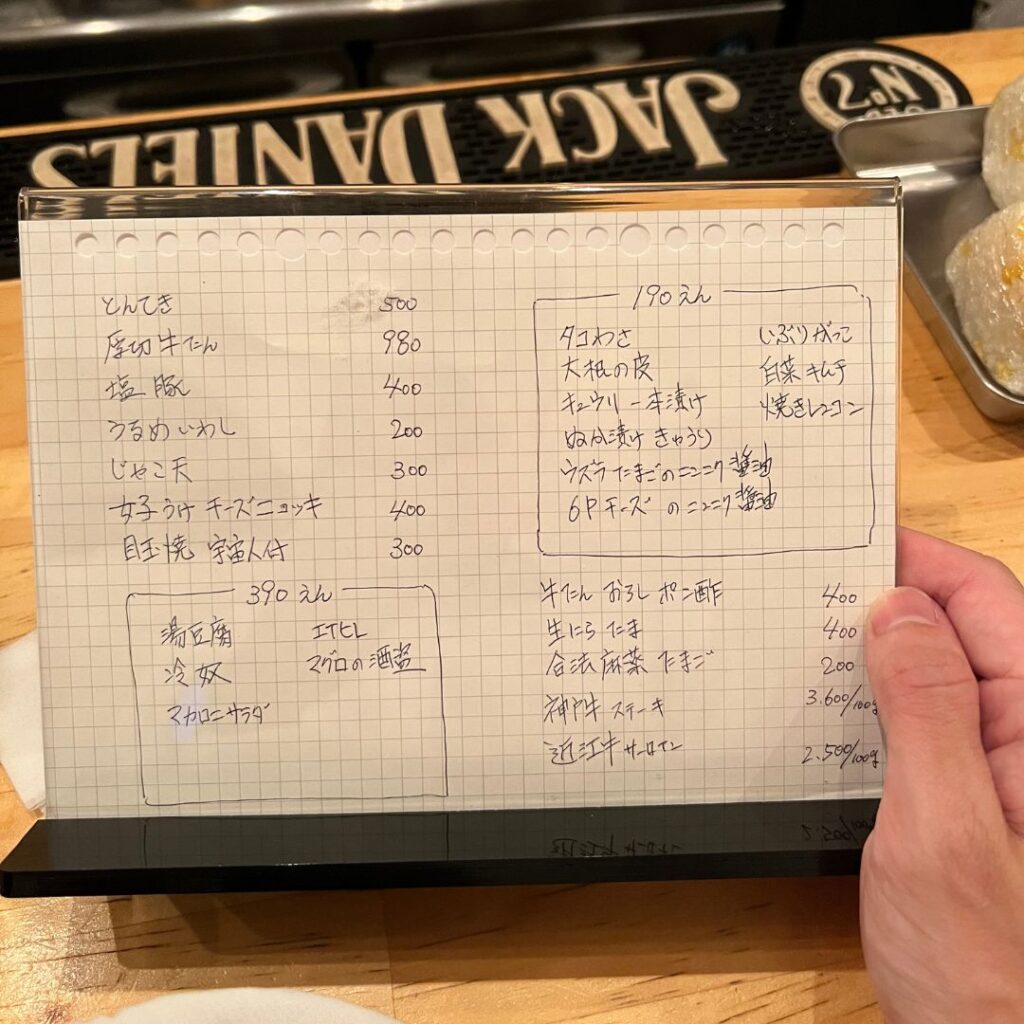 JACK DANIEL'S
No.7
とんてき 500
厚切牛たん 980
塩豚 400
うるめいわし 200
じゃこ天 300
女子うけ チーズニョッキ 400
目玉焼 宇宙人付 300
390えん
湯豆腐 エイヒレ
冷奴 マグロの酒盗
マカロニサラダ
190えん
タコわさ いぶりがっこ
大根の皮 白菜キムチ
キュウリ一本漬け 焼きレンコン
ぬか漬け きゅうり
ウズラたまごのニンニク醤油
6Pチーズのニンニク醤油
牛たん おろし ポン酢 400
生にら たま 400
合法麻薬 たまご 200
神戸牛 ステーキ 3.600/100g
近江牛 サーロイン 2.500/100g